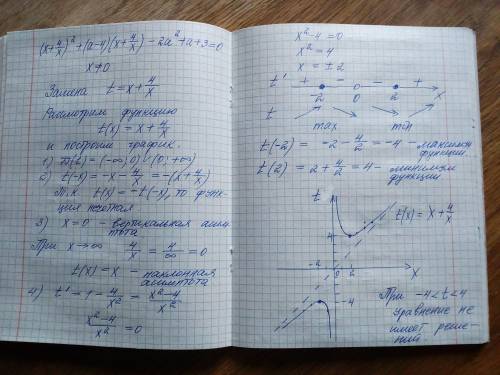 (x+4/x)²+(a-4)(x+4/x)-2a²+a+3=0
x≠0
Замена t=x+4/x
Рассмотрим функцию
t(x)=x+4/x
и построим график.
1) D(t)=(-∞;0)∪(0;+∞)
2) t(-x)=-x-4/x=-(x+4/x)
т.к. t(x)=-t(-x), то функ-
ция нечетная
3) x=0 - вертикальная асим-
птота
При x→∞ 4/x=4/∞=0
t(x)=x - наклонная
асимптота
4) t'=1-4/x²=(x²-4)/x²
(x²-4)/x²=0
x²-4=0
x²=4
x=±2
t' + - - +
-2 0 2 x
t
max min
t(-2)=-2-4/2=-4 - максимум
функции.
t(2)=2+4/2=4 - минимум
функции
t
t(x)=x+4/x
-2 0 2 x
-4
При -4<t<4
уравнение не
имеет реше-
ний